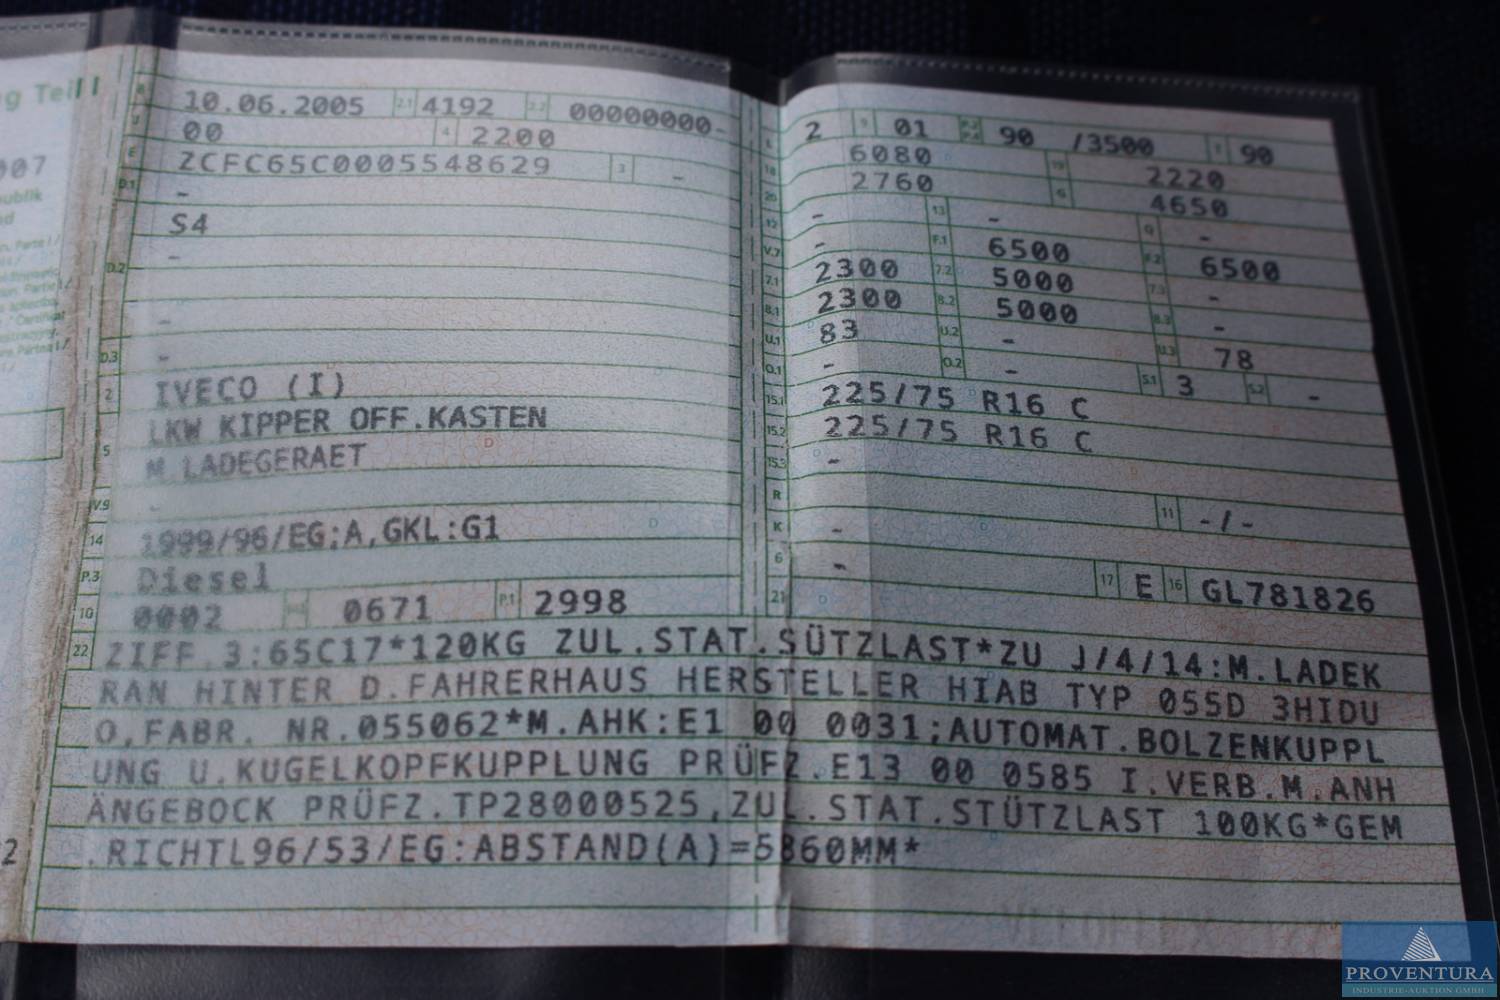 g Teil I
007
publik
B 10.06.2005 2.1 4192 2.2 00000000-
J 00 4 2200
E ZCFC65C0005548629 3 -
D.1 -
S4
D.2 -
-
D.3 -
2 IVECO (I)
5 LKW KIPPER OFF.KASTEN
M.LADEGERAET
V.9 -
14 1999/96/EG;A,GKL:G1
P.3 Diesel
10 0002 0671 P.1 2998
L 2 9 01 90 /3500 T 90
18 6080 19 2220
20 2760 G 4650
12 - 13 - Q -
V.7 - F.1 6500 F.2 6500
7.1 2300 7.2 5000 7.3 -
8.1 2300 8.2 5000 8.3 -
U.1 83 U.2 - U.3 78
O.1 - O.2 - S.1 3 S.2 -
15.1 225/75 R16 C
15.2 225/75 R16 C
15.3 -
R 11 -/-
K -
6 - 17 E 16 GL781826
21
22 ZIFF.3:65C17*120KG ZUL.STAT.SÜTZLAST*ZU J/4/14:M.LADEK
RAN HINTER D.FAHRERHAUS HERSTELLER HIAB TYP 055D 3HIDU
O,FABR. NR.055062*M.AHK:E1 00 0031;AUTOMAT.BOLZENKUPPL
UNG U.KUGELKOPFKUPPLUNG PRÜFZ.E13 00 0585 I.VERB.M.ANH
ÄNGEBOCK PRÜFZ.TP28000525,ZUL.STAT.STÜTZLAST 100KG*GEM
.RICHTL96/53/EG:ABSTAND(A)=5860MM*
PROVENTURA
INDUSTRIE-AUKTION GMBH